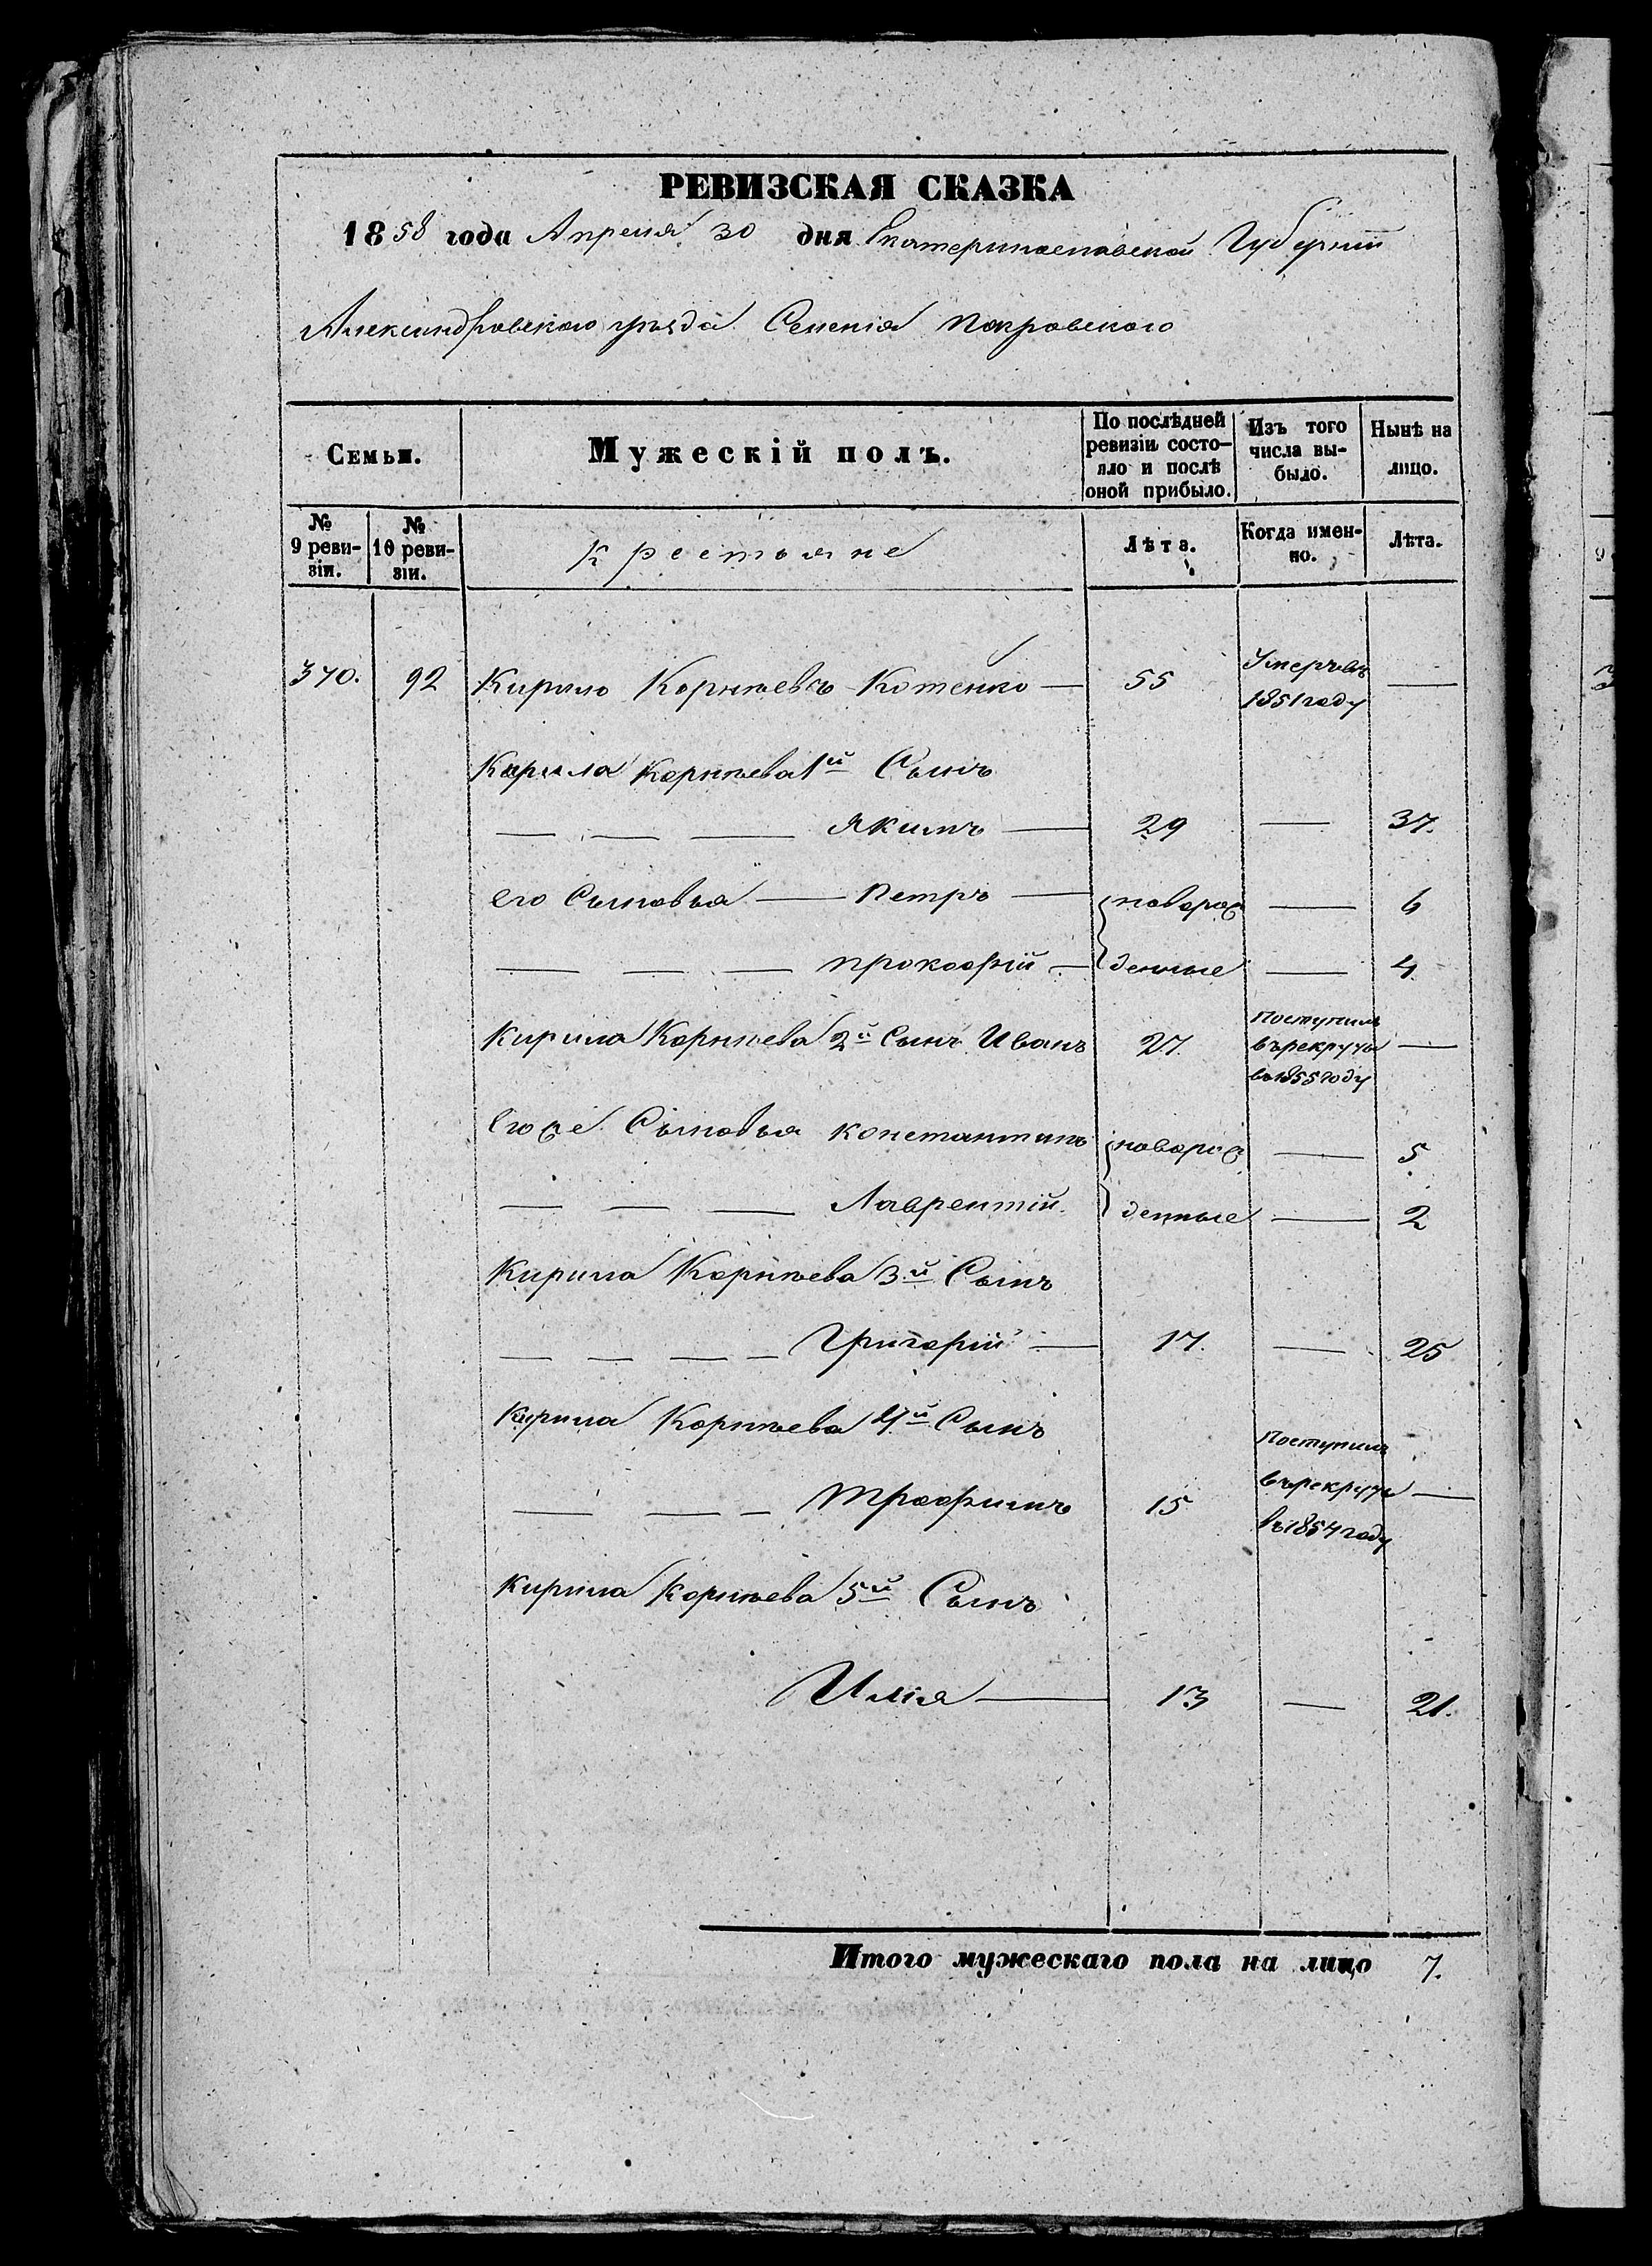 РЕВИЗСКАЯ СКАЗКА
1858 года Апреля 30 дня Екатеринославской Губернiи
Александровского уезда Селенiя Покровского
Семьи. Мужескiй полъ. По послѣдней ревизiи состо-яло и послѣ оной прибыло. Изъ того числа вы-было. Нынѣ на лицо.
№ 9 реви-зiи. № 10 реви-зiи. Крестьяне Лѣта. Когда имен-но. Лѣта.
370. 92 Кирило Корнѣевъ Котенко — 55 Умеръ въ 1851 году —
Кирила Корнѣева 1й Сынъ
— — — Якимъ — 29 — 37.
его Сыновья — Петръ — новорож — 6
— — — Прокофiй — денные — 4
Кирила Корнѣева 2й Сынъ Иванъ 27. поступилъ въ рекруты въ 1855 году —
Егоже Сыновья Константинъ новорож — 5
— — — Лаврентiй денные — 2
Кирила Корнѣева 3й Сынъ
— — — — Григорiй — 17. — 25
Кирила Корнѣева 4й Сынъ
— — — Трофимъ 15 Поступилъ въ рекруты въ 1854 году —
Кирила Корнѣева 5й Сынъ
Илiя — 13 — 21.
Итого мужескаго пола на лицо 7.